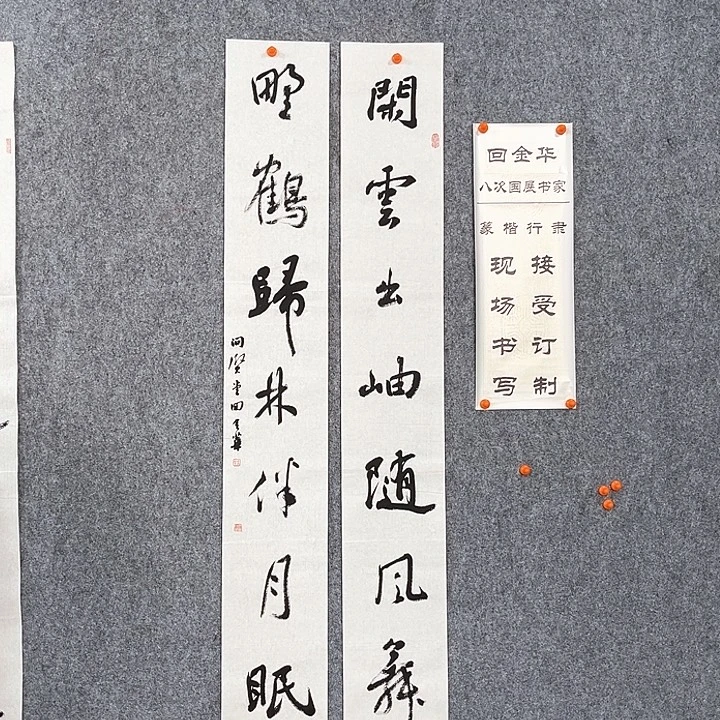 閑雲出岫随風舞
野鶴歸林伴月眠
问贤堂回金華
回金华
八次国展书家
篆楷行隶
接受订制
现场书写